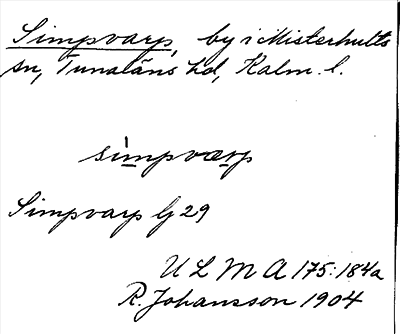 Simpvarp, by i Misterhults
sn, Tunaläns hd, Kalm. l.
sìmpværp
Simpvarp G 29
ULMA 175:184a
R. Johansson 1904